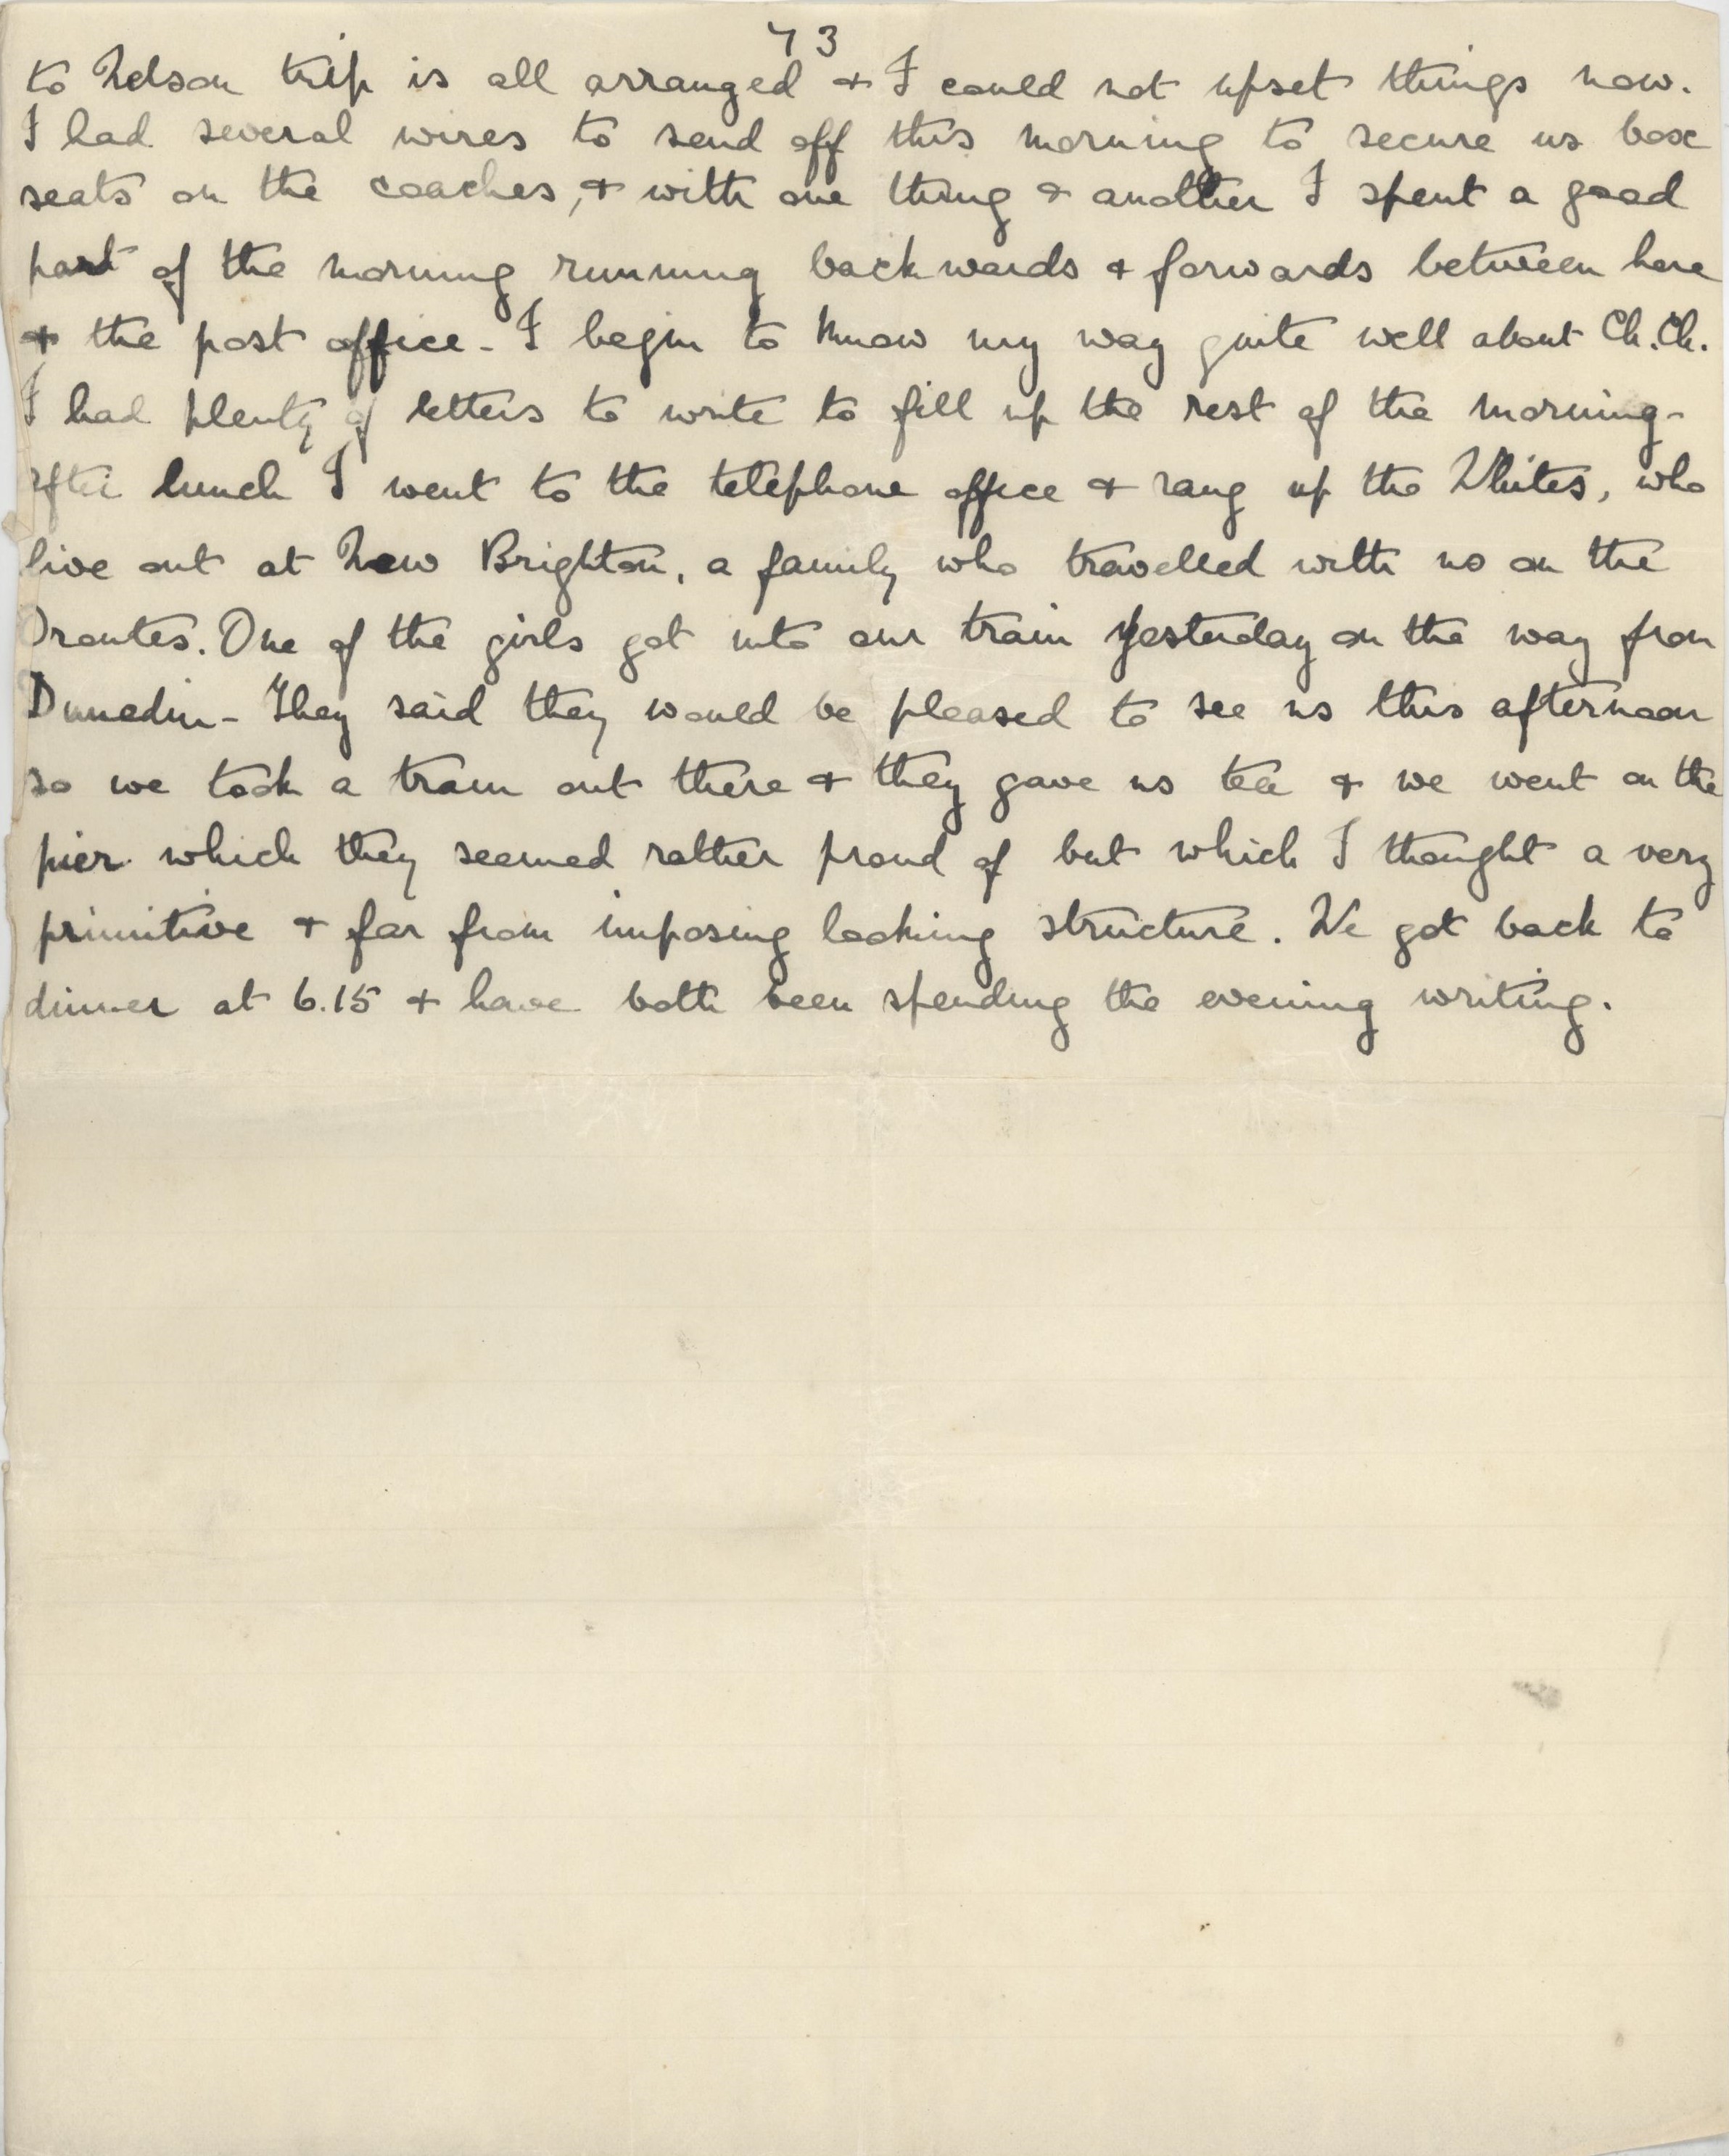 73
to Nelson trip is all arranged & I could not upset things now.
I had several wires to send off this morning to secure us box
seats on the coaches, & with one thing & another I spent a good
part of the morning running backwards & forwards between here
& the post office - I begin to know my way quite well about Ch.Ch.
I had plenty of letters to write to fill up the rest of the morning -
After lunch I went to the telephone office & rang up the Whites, who
live out at New Brighton, a family who travelled with us on the
Orontes. One of the girls got into our train yesterday on the way from
Dunedin - They said they would be pleased to see us this afternoon
so we took a tram out there & they gave us tea & we went on the
pier which they seemed rather proud of but which I thought a very
primitive & far from imposing looking structure. We got back to
dinner at 6.15 & have both been spending the evening writing.